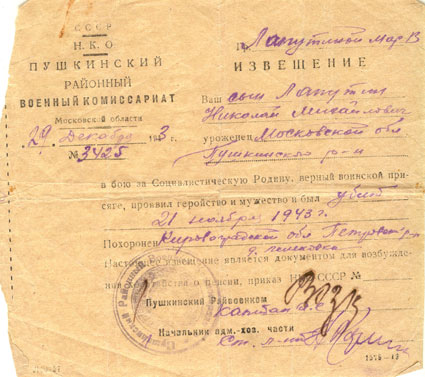 СССР
Н.К.О
ПУШКИНСКИЙ
РАЙОННЫЙ
ВОЕННЫЙ КОМИССАРИАТ
Московской области
29 Декабря 3
№ 3425
Гр. Лапутиной Мар. В
ИЗВЕЩЕНИЕ
Ваш сын Лапутин
Николай Михайлович
уроженец Московской обл
Пушкинского р-н
в бою за Социалистическую Родину, верный воинской при-
сяге, проявил геройство и мужество и был убит
21 ноября 1943 г.
Похоронен Кировоградской обл Петровск р-н
Настоящее извещение является документом для возбужде-
о пенсии, приказ НКО СССР №
Пушкинский Райвоенком
Капитан а.с.
Начальник адм.-хоз. части
Ст. л-нт а/с